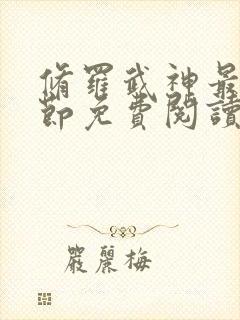 脩羅武神最
節免費閱讀
嚴麗梅